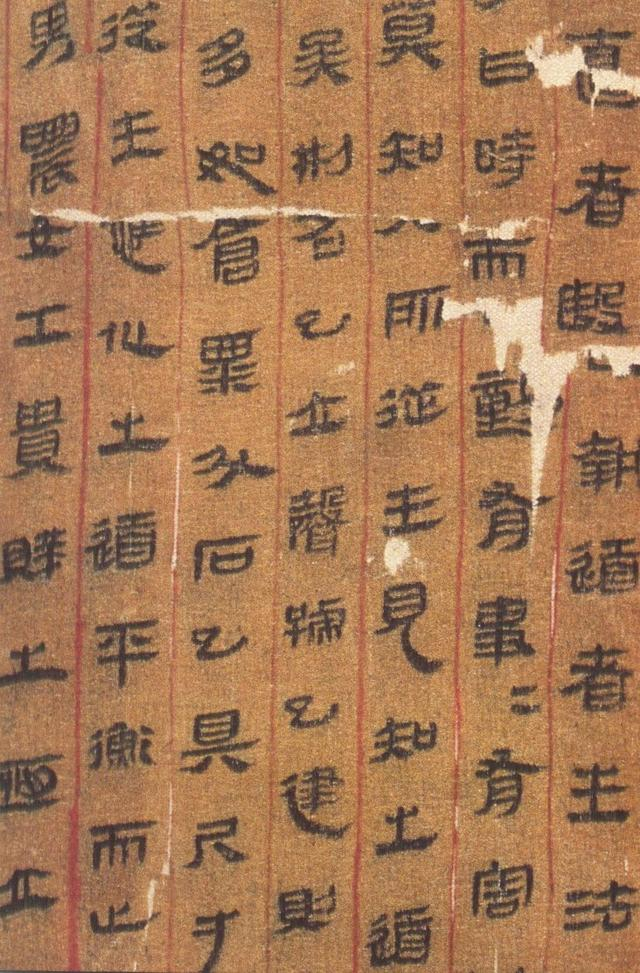 者殹執道者生法
曰時而動有事=有害
莫知其所從生見知之道
矣刑名已立聲號已建則
多如倉粟斗石已具尺寸
從生應化之道平衡而止
男農女工貴賤之恒立